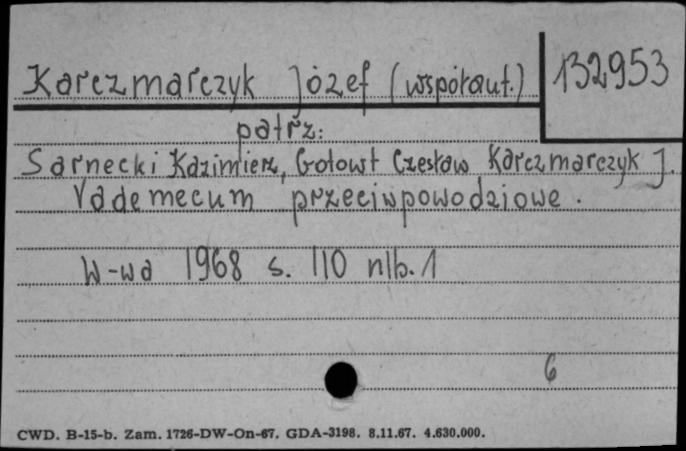 Karczmarczyk Józef (współaut.)
132953
patrz:
Sarnecki Kazimierz, Gotowt Czesław Karczmarczyk J.
Vademecum przeciwpowodziowe.
W-wa 1968 s. 110 nlb. 1
6
CWD. B-15-b. Zam. 1726-DW-On-67. GDA-3198. 8.11.67. 4.630.000.